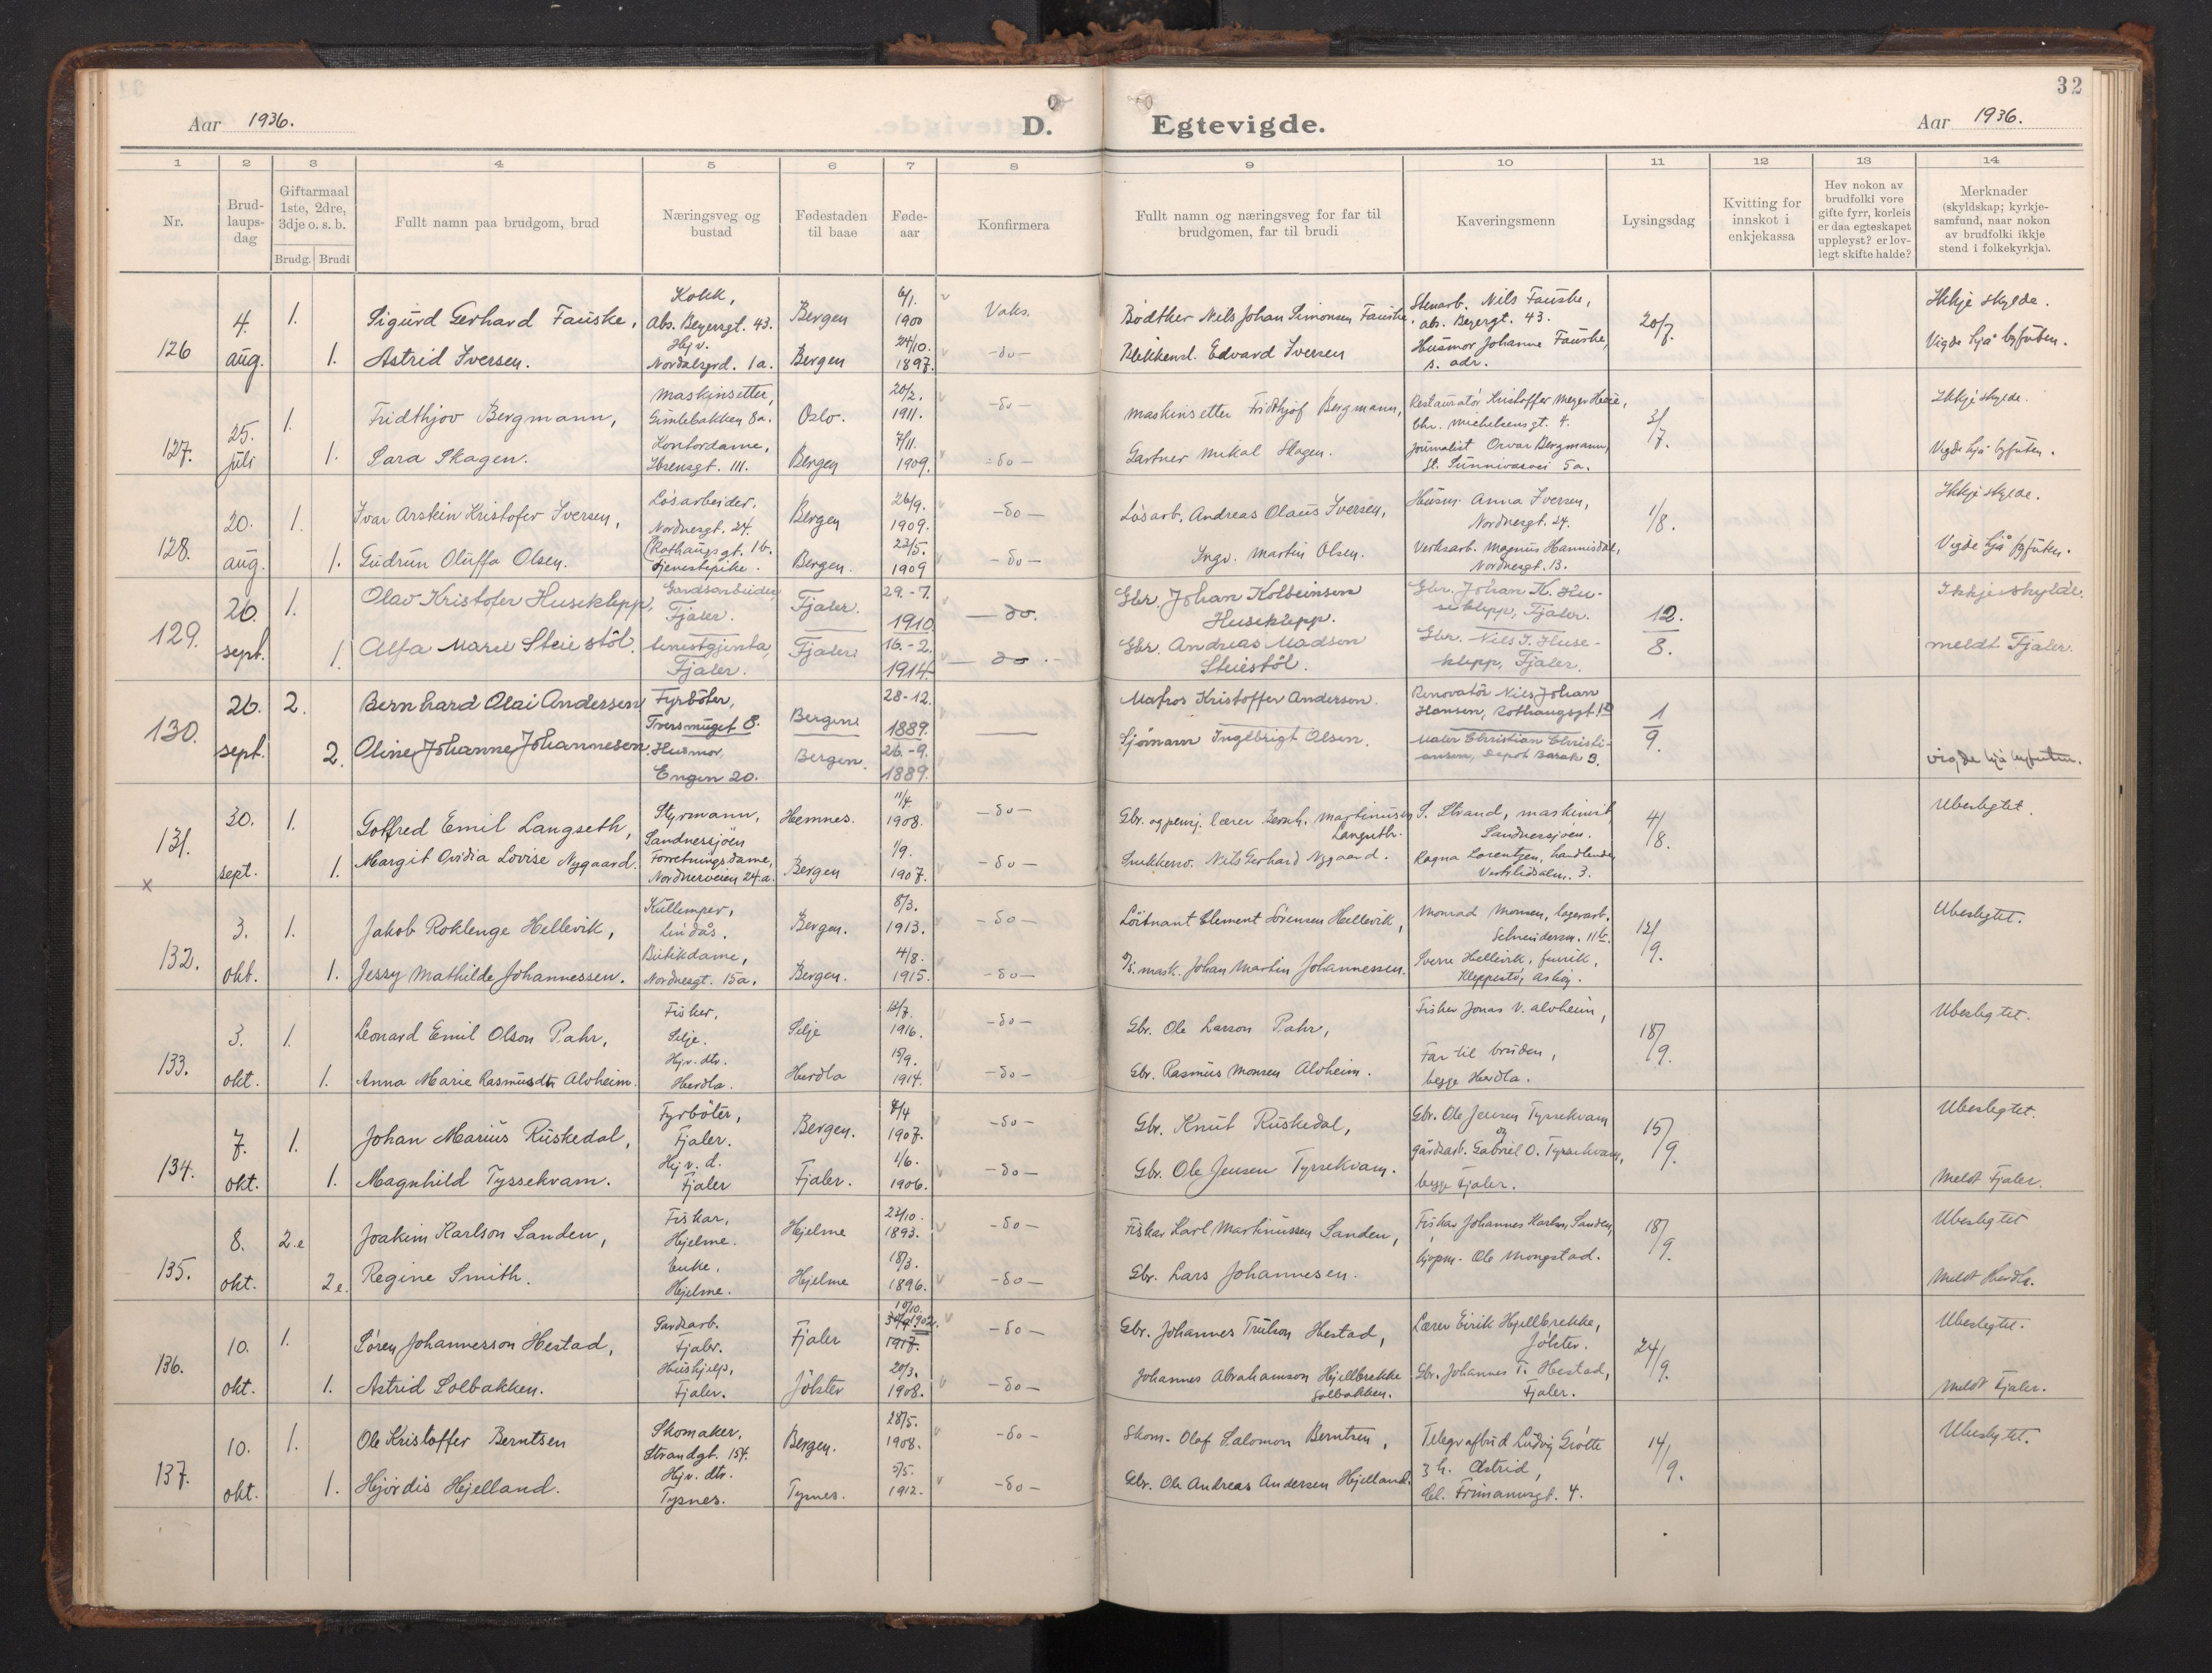 32
Aar 1936. D. Egtevigde. Aar 1936.
1 2 3 4 5 6 7 8 9 10 11 12 13 14
Nr.
Brud-
laups-
dag
Giftarmaal
1ste, 2dre,
3dje o. s. b.
Brudg. Brudi
Fullt namn paa brudgom, brud
Næringsveg og
bustad
Fødestaden
til baae
Føde-
aar
Konfirmera
Fullt namn og næringsveg for far til
brudgomen, far til brudi
Kaveringsmenn
Lysingsdag
Kvitting for
innskot i
enkjekassa
Hev nokon av
brudfolki vore
gifte fyrr, korleis
er daa egteskapet
uppløyst? er lov-
legt skifte halde?
Merknader
(skyldskap; kyrkje-
samfund, naar nokon
av brudfolki ikkje
stend i folkekyrkja).
126
4. aug.
1. Sigurd Gerhard Fauske,
Kokk,
Abs. Beyersgt. 43.
Bergen
6/1.
1900
Vaks.
Bødtker Nils Johan Simonsen Fauske
Stenarb. Nils Fauske,
abs. Beyergt. 43.
20/7.
Ikkje skylde.
1. Astrid Iversen.
Hjv.
Nordalsgrd. 1a.
Bergen
24/10.
1897.
-do-
Blikkensl. Edvard Iversen
Husmor Johanne Fauske,
s. adr.
Vigde hjå byfuten.
127.
25. juli
1. Fridthjov Bergmann,
Maskinsetter,
Gimlebakken 8a.
Oslo.
20/2.
1911.
-do-
Maskinsetter Fridthjof Bergmann,
Restauratør Kristoffer Meyer
Chr. Michelsensgt. 4.
3/7.
Ikkje skylde.
1. Sara Skagen.
Kontordame,
Ibsensgt. 111.
Bergen
7/11.
1909.
-do-
Gartner Mikal Skagen.
Journalist Bergmann,
St. Sunnivasvei 5a.
Vigde hjå byfuten.
128.
20. aug.
1. Ivar Arstein Kristofer Iversen,
Løsarbeider,
Nordnesgt. 24.
Bergen
26/9.
1909.
-do-
Løsarb. Andreas Olaus Iversen,
Husm. Anna Iversen,
Nordnesgt. 24.
1/8.
Ikkje skylde.
1. Gudrun Oluffa Olsen.
(Rothaugsgt. 1b.
Tjenestepike.
Bergen.
23/5.
1909
-do-
Ingv. Martin Olsen.
Verksarb. Magnus Hannisdal,
Nordnesgt. 13.
Vigde hjå byfuten.
129.
26. sept.
1. Olav Kristofer Huseklepp,
Gardsarbeider,
Fjaler.
Fjaler.
29.-7.
1910
-do.
Gbr. Johan Kolbeinson
Huseklepp.
Gbr. Johan K. Hu-
seklepp, Fjaler.
12.
8.
Ikkje skylde.
1. Alfa Marie Steiestöl.
tenestgjenta,
Fjaler.
Fjaler
16.-2.
1914
-do.-
Gbr. Andreas Madson
Steiestöl.
Gbr. Nils J. Huse-
klepp, Fjaler.
meldt Fjaler.
130.
26. sept.
2. Bernhard Olai Andersen,
Fyrböter,
Tversmuget 8.
Bergen
28-12.
1889.
Matros Kristoffer Anderson.
Renovatör Nils Johan
Hansen, Rothaugsgt 1b
1
9.
2. Oline Johanne Johannesen
Husmor,
Engen 20.
Bergen.
26.-9.
1889.
Sjömann Ingebrigt Olsen.
Maler Christian Christi-
ansen, Depot Barak 3.
vigde hjå byfuten.
131.
x
30. sept.
1. Gotfred Emil Langseth,
Styrmann,
Sandnessjöen
Hemnes.
11/4.
1908.
-do-
Gbr. og pensj. lærer Bernh. Martinusen
Langseth.
S. Strand, maskinist,
Sandnessjöen.
4/8.
Ubeslegtet.
1. Margit Ovidia Lovise Nygaard.
Forretningsdame,
Nordnesveien 24.a.
Bergen
1/9.
1907.
-do-
Snekkersv. Nils Gerhard Nygaard.
Ragna Lorentzen, handlende,
Vestlidsalm. 3.
132.
3. okt.
1. Jakob Roklenge Hellevik,
Kullemper,
Lindås.
Bergen.
8/3.
1913.
-do-
Löitnant Clement Sørensen Hellevik,
Monrad Monsen, lagerarb.
11b.
12/9.
Ubeslegtet.
1. Jessy Mathilde Johannessen.
Butikdame,
Nordnesgt. 15a.
Bergen.
4/8.
1915.
-do-
mask. Johan Martin Johannessen.
Sverre Hellevik,
Kleppestø, Askøy.
133.
3. okt.
1. Leonard Emil Olson Pahr,
Fisker,
Selje.
Selje
1916.
-do-
Gbr. Ole Larson Pahr,
Fisker Jonas V. Alvheim,
18/9.
Ubeslegtet.
1. Anna Marie Rasmusdtr Alvheim.
Hjv. dtr.
Herdla.
Herdla
15/9.
1914.
-do-
Gbr. Rasmus Monsen Alvheim.
Far til bruden,
begge Herdla.
134.
7. okt.
1. Johan Marius Ruskedal,
Fyrböter,
Fjaler.
Bergen.
1907.
-do-
Gbr. Knut Ruskedal,
Gbr. Ole Jensen Tyssekvam
og
15/9.
Ubeslegtet.
1. Magnhild Tyssekvam.
Hjv. d.
Fjaler
Fjaler.
1/6.
1906.
-do-
Gbr. Ole Jensen Tyssekvam.
gårdsarb. Gabriel O. Tyssekvam,
begge Fjaler.
Meldt Fjaler.
135.
8. okt.
2.e Joakim Karlson Sanden,
Fiskar,
Hjelme.
Hjelme
23/10.
1893.
-do-
Fiskar Karl Martinussen Sanden,
Fiskar Johannes Karlsen Sanden,
18/9.
Ubeslegtet
2e. Regine Smith.
Enke,
Hjelme.
Hjelme
18/3.
1896.
-do-
Gbr. Lars Johannesen.
kjøpm. Ole Mongstad.
Meldt Herdla.
136.
10. okt.
1. Søren Johannesson Hestad,
Gardsarb.
Fjaler.
Fjaler
10/10.
1902.
1917.
-do-
Gbr. Johannes Trulson Hestad,
Lærer Eirik Hjellbrekke,
Jölster.
24/9.
Ubeslegtet.
1. Astrid Solbakken.
Hushjelp,
Fjaler.
Jölster
20/3.
1908.
-do-
Johannes Abrahamson Hjellbrekke
Solbakken.
Gbr. Johannes T. Hestad,
Fjaler.
Meldt Fjaler.
137.
10. okt.
1. Ole Kristoffer Berntsen
Skomaker,
Strandgt. 154.
Bergen.
28/5.
1908.
-do-
Skom. Olaf Salomon Berntsen,
Telegrafbud Ludvig Grøtte
14/9.
Ubeslegtet.
1. Hjördis Hjelland.
Hjv. dtr.
Tysnes.
Tysnes.
5/5.
1912.
-do-
Gbr. Ole Andreas Andersen Hjelland.
Astrid,
Cl. Frimannsgt. 4.